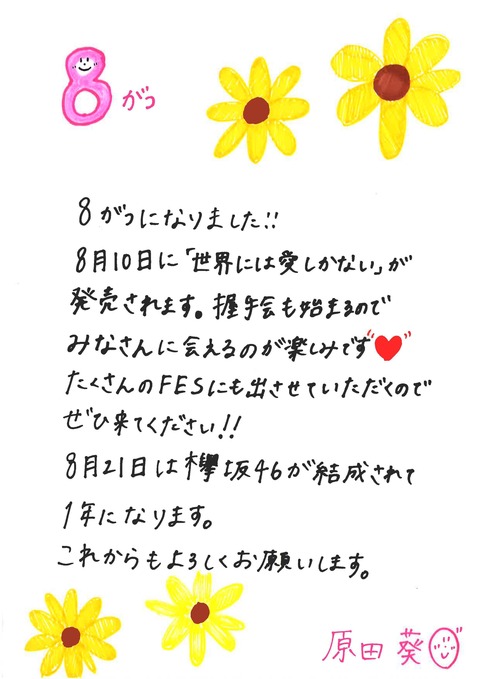 8がつ
8がつになりました!!
8月10日に「世界には愛しかない」が
発売されます。握手会も始まるので
みなさんに会えるのが楽しみです♥
たくさんのFESにも出させていただくので
ぜひ来てください!!
8月21日は欅坂46が結成されて
1年になります。
これからもよろしくお願いします。
原田 葵